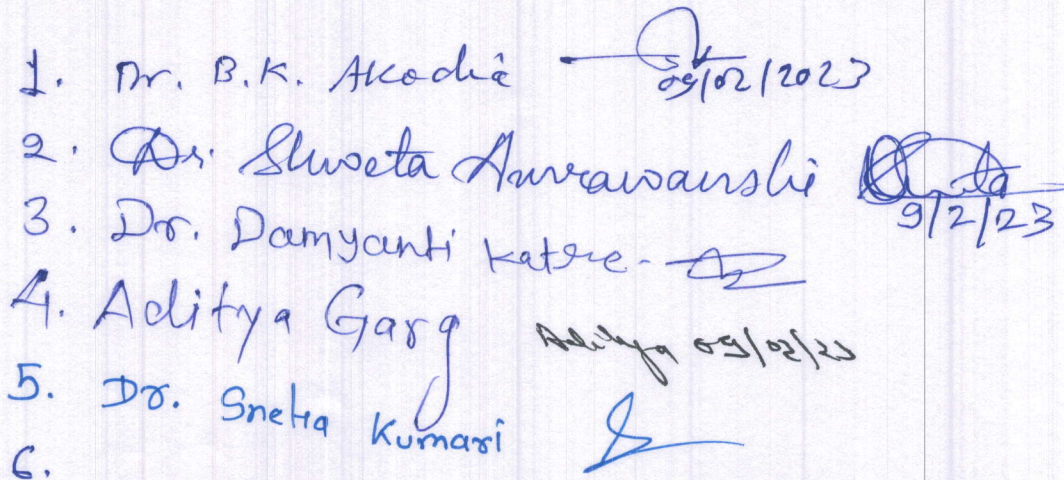 1. Dr. B.K. Akodia 09/02/2023
2. Dr. Shweta 9/2/23
3. Dr. Damyanti Katre -
4. Aditya Garg Aditya 09/02/23
5. Dr. Sneha Kumari
6.